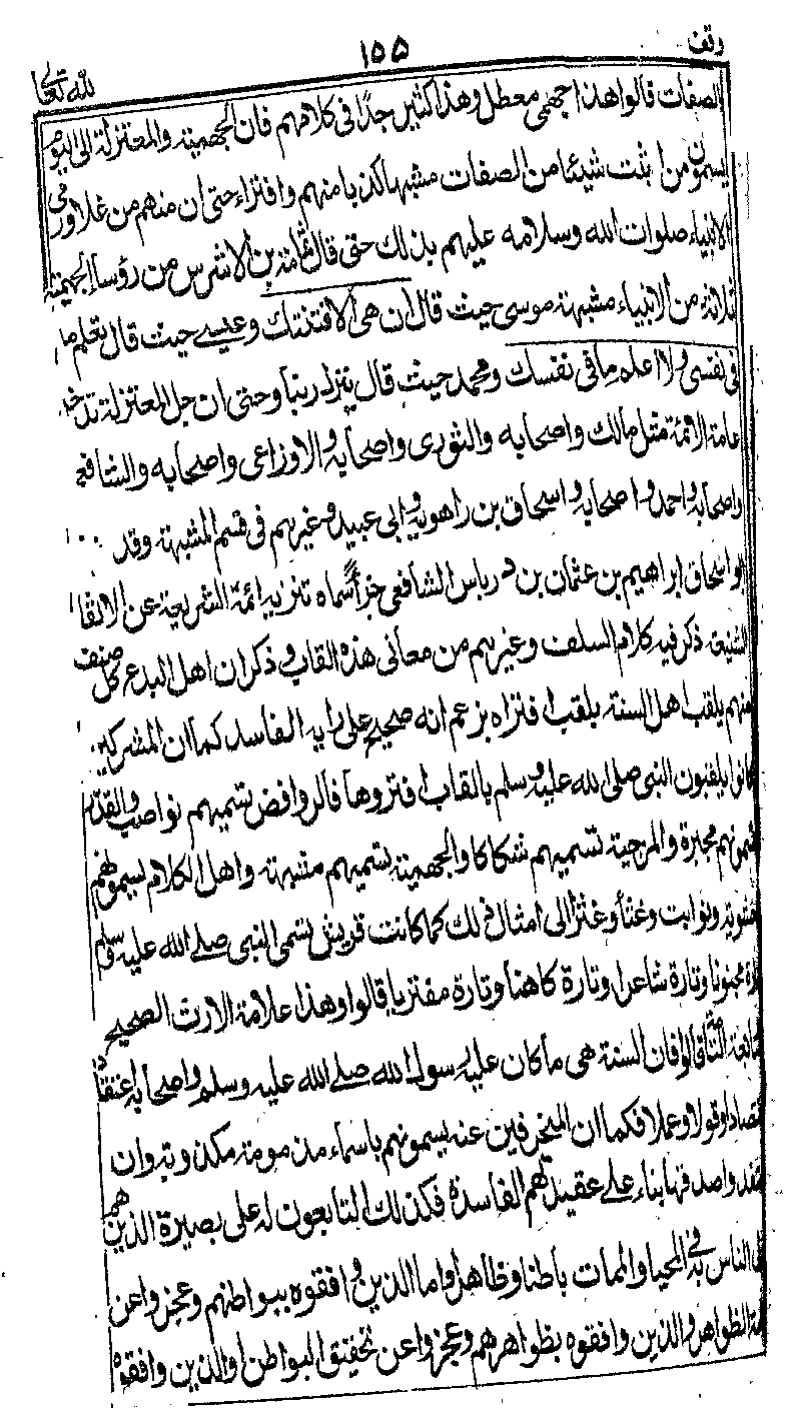 وقف
١٥٥
لله تعالى
الصفات قالوا هذا جهمى معطل وهذا كثير جدًا فى كلامهم فان الجهمية والمعتزلة الى اليوم
يسمون من اثبت شيئا من الصفات مشبها كذبا منهم وافتراء حتى ان منهم من غلا ورمى
الانبياء صلوات الله وسلامه عليهم بذلك حتى قال ثمامة بن الاشرس من رؤساء الجهمية
ثلاثة من الانبياء مشبهة موسى حيث قال ان هى الا فتنتك وعيسے حيث قال تعلم ما
فى نفسى ولا اعلم ما فى نفسك ومحمد حيث قال ينزل ربنا وحتى ان جل المعتزلة تدخل
عامة الائمة مثل مالك واصحابه والثورى واصحابه والاوزاعى واصحابه والشافعى
واصحابه واحمد واصحابه واسحاق بن راهويه وابى عبيد وغيرهم فى قسم المشبهة وقد
ابو اسحاق ابراهيم بن عثمان بن درباس الشافعى جزأ سماه تنزيه ائمة الشريعة عن الالقا
الشنيعة ذكر فيه كلام السلف وغيرهم من معانى هذه القاب وذكر ان اهل البدع كل صنف
منهم يلقب اهل السنة بلقب افتراه بزعم انه صحيح على رايه الفاسد كما ان المشركين
كانوا يلقبون النبى صلى الله عليه وسلم بالقاب افتروها فالروافض تسميهم نواصب والقدرية
يسمونهم مجبرة والمرجية تسميهم شكاكا والجهمية تسميهم مشبهة واهل الكلام يسمونهم
حشوية ونوابت وغثأ وغثرا الى امثال ذلك كما كانت قريش تسمى النبى صلے الله عليه وسلم
تارة مجنونا وتارة شاعرا وتارة كاهنا وتارة مفتريا قالوا وهذا علامة الارث الصحيح
والمتابعة التامة قالوا فان السنة هى ما كان عليه رسول الله صلے الله عليه وسلم واصحابه اعتقادا
واقتصادا وقولا وعملا فكما ان المنحرفين عنه يسمونهم باسماء مذمومة مكذوبة وان
اعتقدوا صدقها بناء علے عقيدتهم الفاسدة فكذلك التابعون له على بصيرة الذين هم
اولى الناس به فى المحيا والممات باطنا وظاهرا واما الذين وافقوه ببواطنهم وعجزوا عن
اقامة الظواهر والذين وافقوه بظواهرهم وعجزوا عن تحقيق البواطن او الذين وافقوه